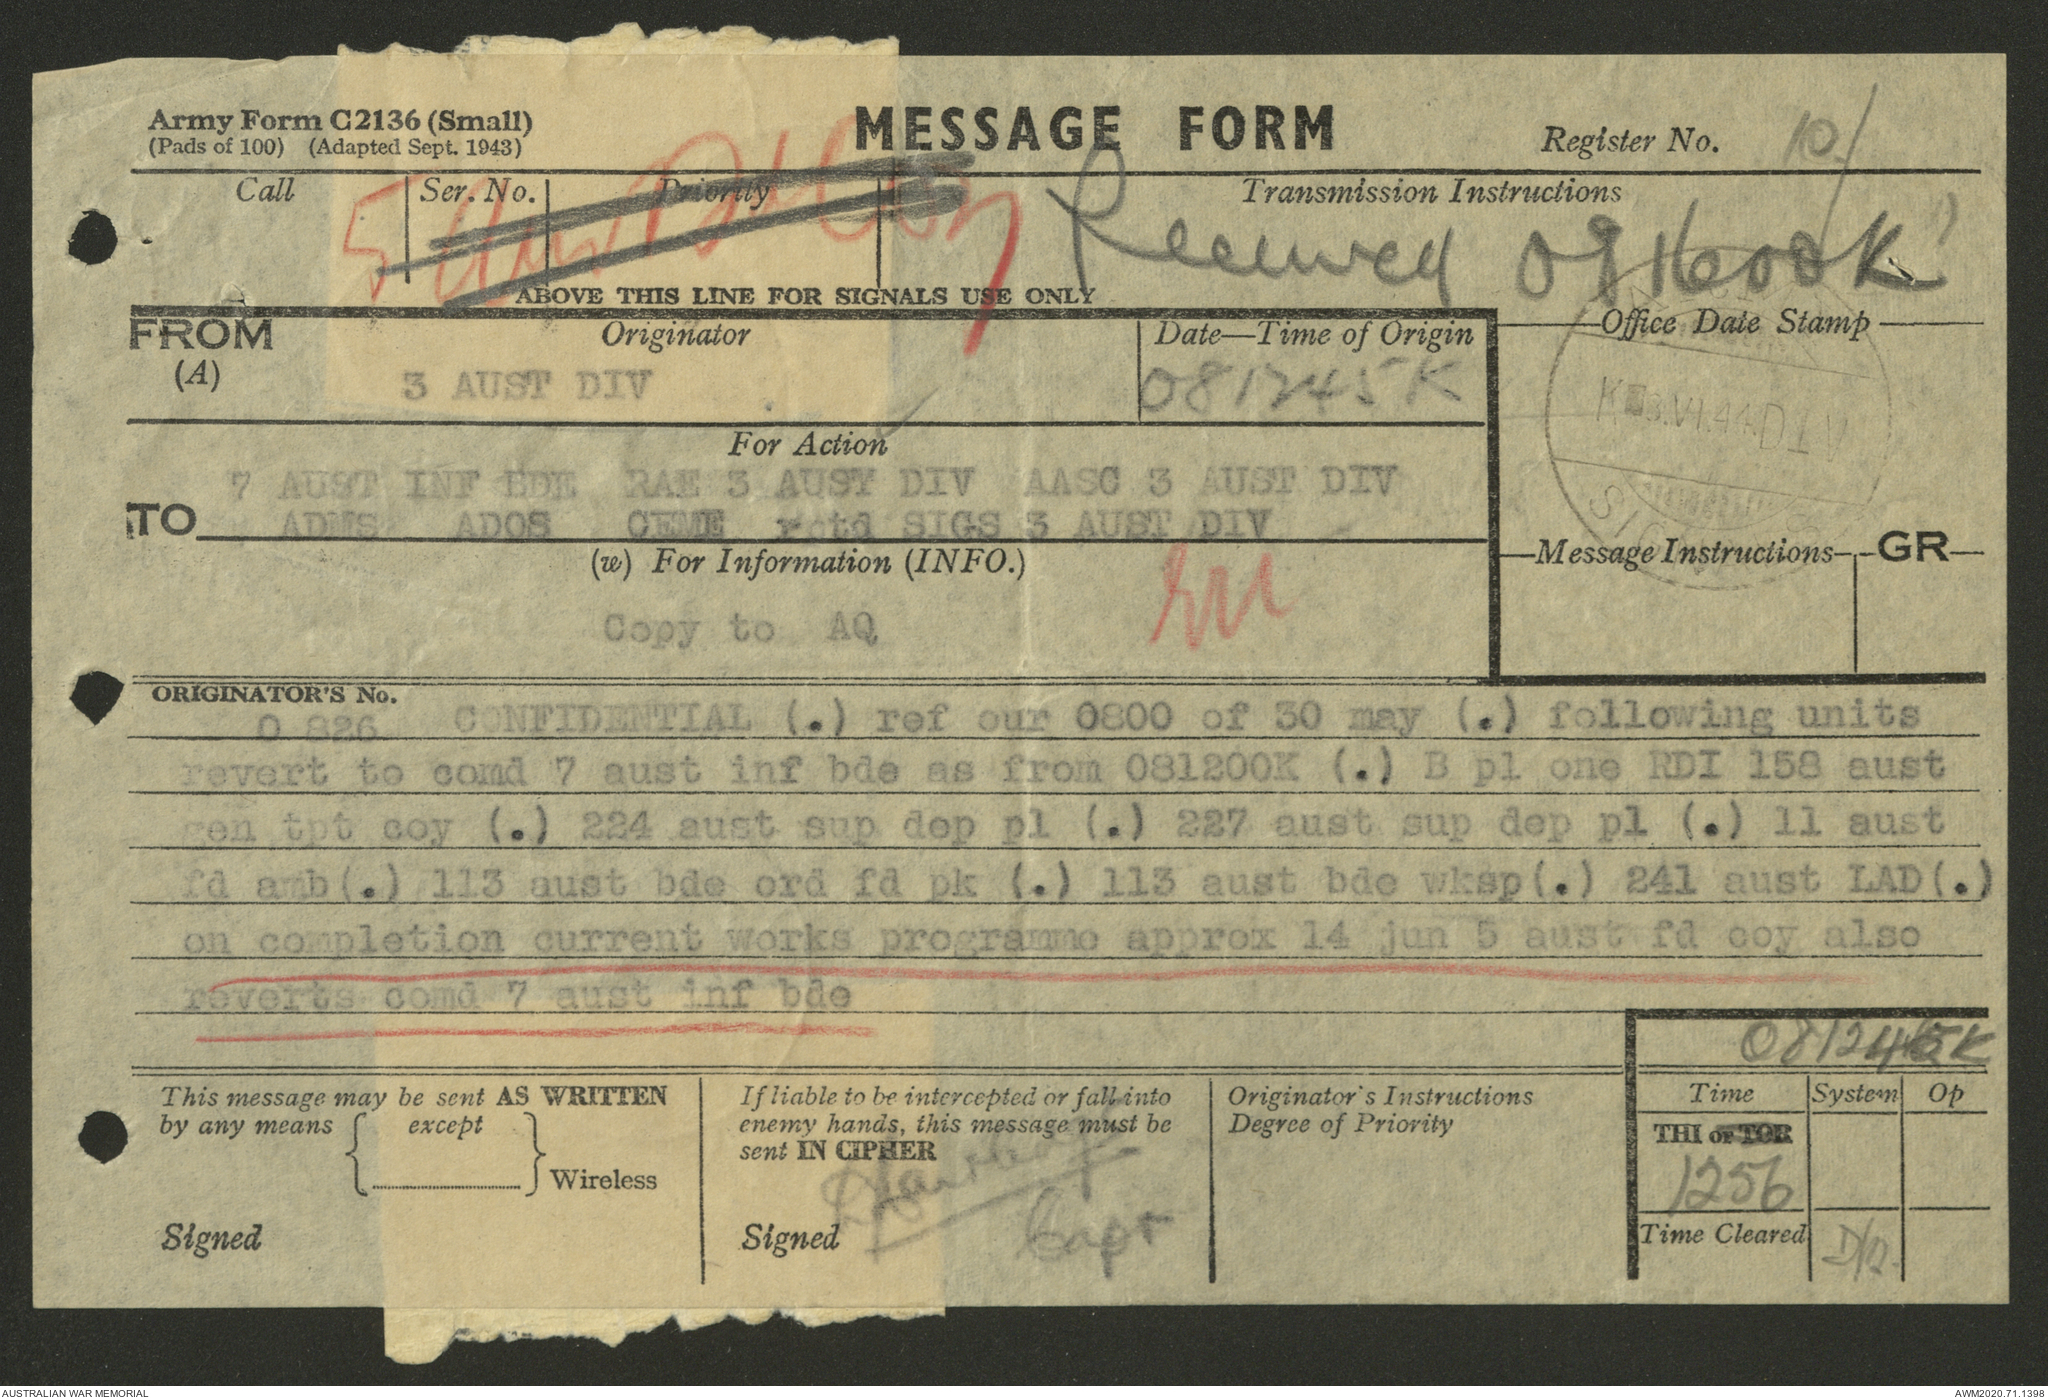 Army Form C2136 (Small)
(Pads of 100) (Adapted Sept. 1943)
MESSAGE FORM
Register No. 10/
Call
Ser. No.
Priority
Transmission Instructions
Received 081600K
ABOVE THIS LINE FOR SIGNALS USE ONLY
FROM
(A)
Originator
3 AUST DIV
Date—Time of Origin
081245K
Office Date Stamp
VI.44 DIV
SIG
For Action
7 AUST INF BDE RAE 3 AUST DIV AASC 3 AUST DIV
TO ADMS ADOS CEME rptd SIGS 3 AUST DIV
(w) For Information (INFO.)
Message Instructions
GR
Copy to AQ
ORIGINATOR'S No.
O 826 CONFIDENTIAL (.) ref our O800 of 30 may (.) following units
revert to comd 7 aust inf bde as from 081200K (.) B pl one RDI 158 aust
gen tpt coy (.) 224 aust sup dep pl (.) 227 aust sup dep pl (.) 11 aust
fd amb(.) 113 aust bde ord fd pk (.) 113 aust bde wksp(.) 241 aust LAD(.)
on completion current works programme approx 14 jun 5 aust fd coy also
reverts comd 7 aust inf bde
081245K
This message may be sent AS WRITTEN
by any means except
Wireless
Signed
If liable to be intercepted or fall into
enemy hands, this message must be
sent IN CIPHER
Signed
Capt
Originator's Instructions
Degree of Priority
Time
System
Op
THI or TOR
1256
Time Cleared
AUSTRALIAN WAR MEMORIAL
AWM2020.71.1398